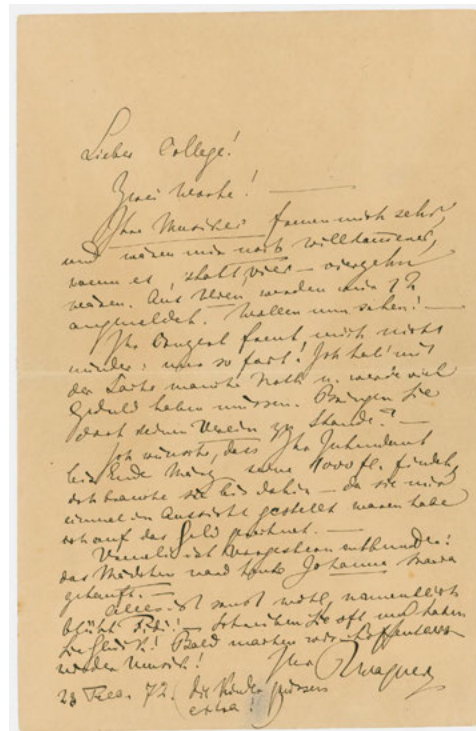 Lieber College!
Zwei Worte! —
Ihre Musiker freuen mich sehr,
und wären mir noch willkommener,
wenn es, statt vier — vierzehn
wären. Aus Wien werden mir
angemeldet. Wollen nun sehen! —
Ihr Conzert freut mich nicht
minder: nur so fort! Ich hab' mit
der Sache manche Noth u. werde viel
Geduld haben müssen. Bringen Sie
doch einen Verein zu Stande? —
Ich wünschte, dass Ihr Intendant
bis Ende März seine 1000 fl. findet,
ich brauche sie bis dahin — da sie mir
einmal in Aussicht gestellt waren habe
ich auf das Geld gerechnet. —
ist vorgestern entbunden:
das Mädchen ward heute Johanna Maria
getauft. —
Alles ist sonst wohl, namentlich
blüht Fidi! — Schreiben Sie oft und haben
Sie Glück! Bald machen wir hoffentlich
wieder Musik!
Ihr RWagner
23 Febr. 72. (die Kinder grüssen
extra!)